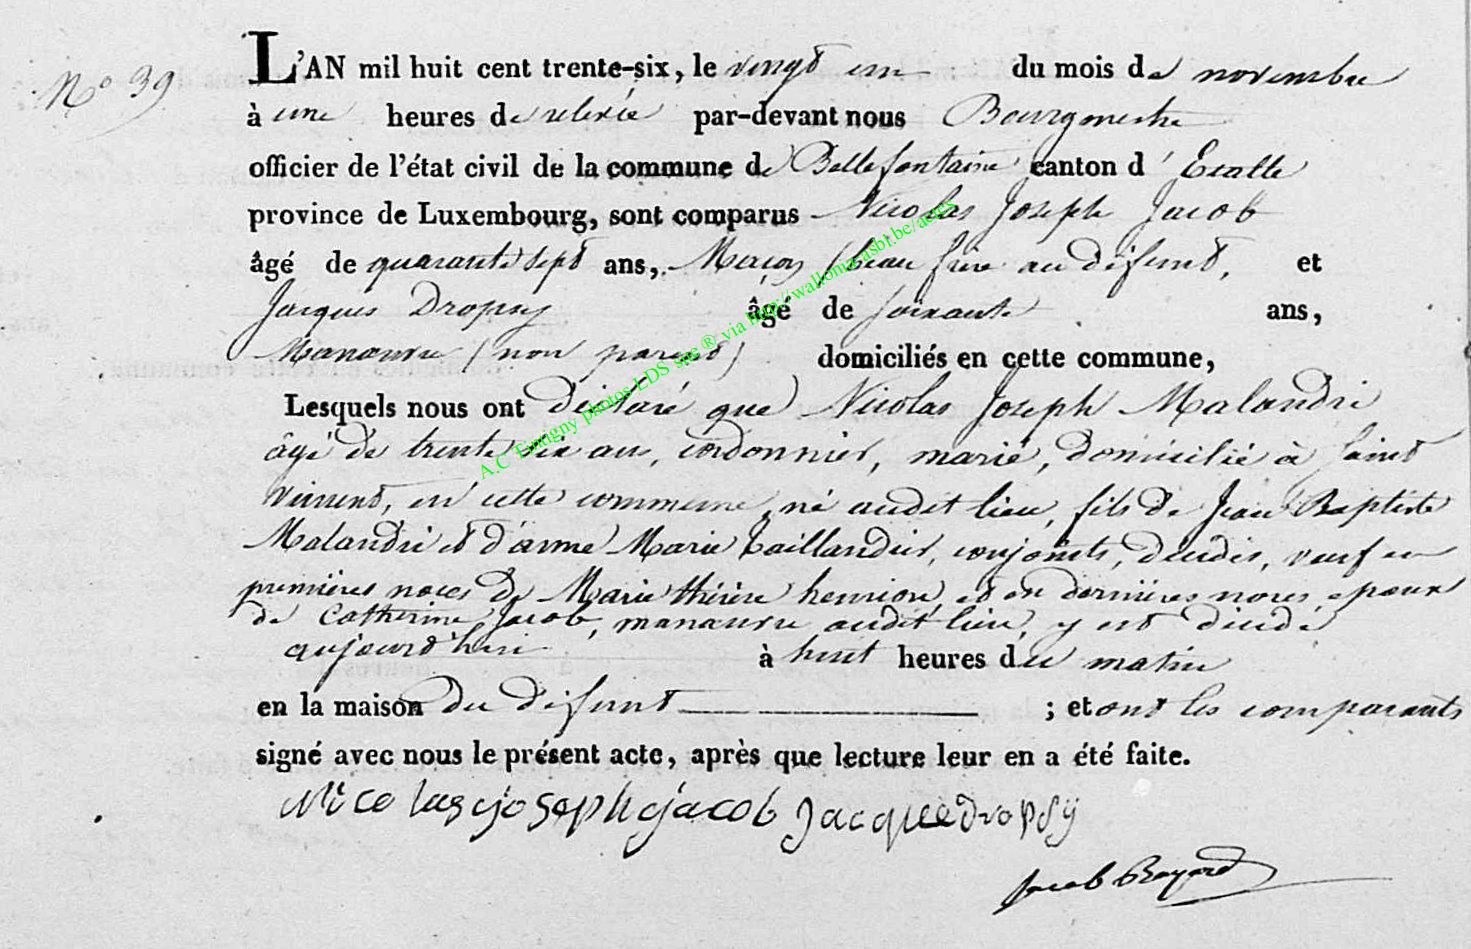 N° 39
L'AN mil huit cent trente-six, le vingt un du mois de novembre
à une heures de relevée par-devant nous Bourgmestre
officier de l'état civil de la commune de Bellefontaine canton d'Etalle
province de Luxembourg, sont comparus Nicolas Joseph Jacob
âgé de quarante sept ans, Maçon (beau frère au défunt, et
Jacques Dropsy âgé de soixante ans,
Manœuvre (non parent) domiciliés en cette commune,
Lesquels nous ont déclaré que Nicolas Joseph Malandri
âgé de trente six ans, cordonnier, marié, domicilié à Saint
Vincent, en cette commune, né audit lieu, fils de Jean Baptiste
Malandri et d'anne Marie taillandier, conjoints, décédés, veuf en
premières noces de Marie thérèse henrion, et en dernières noces, epoux
de Catherine Jacob, manœuvre audit lieu, y est décédé
aujourd'hui à huit heures du matin
en la maison du défunt ; et ont les comparants
signé avec nous le présent acte, après que lecture leur en a été faite.
Nicolas joseph jacob Jacque dropsy
Jacob
A.C Tintigny photos LDS scc ® via http://wallonia.asbl.be/actes